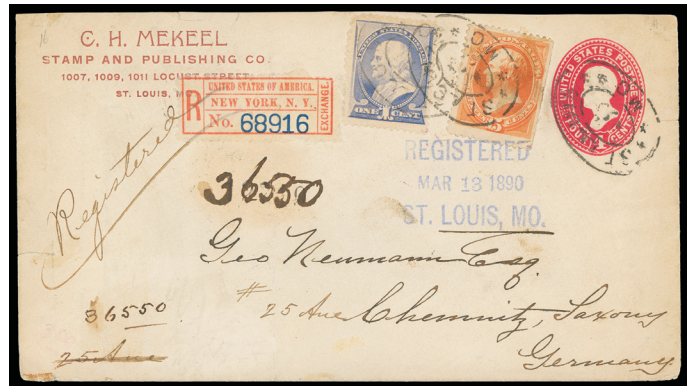 C. H. MEKEEL
STAMP AND PUBLISHING CO.
1007, 1009, 1011 LOCUST STREET,
ST. LOUIS, M
R
UNITED STATES OF AMERICA.
NEW YORK, N. Y.
No. 68916
EXCHANGE
ONE CENT
UNITED STATES POSTAGE
CENTS
REGISTERED
MAR 13 1890
ST. LOUIS, MO.
Registered
36550
Geo Neumann Esq.
# 25 Aue Chemnitz, Saxony
Germany
36550
25 Aue